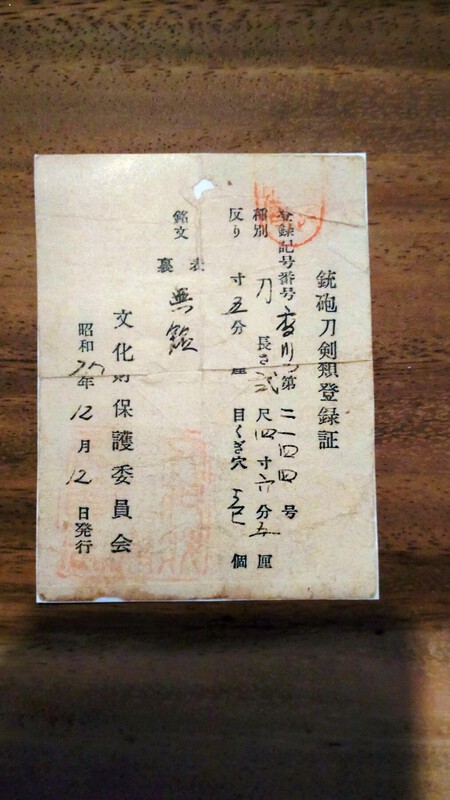 銃砲刀剣類登録証
登録記号番号 香川 第二一四四号
種別 刀 長さ 弐尺四寸六分五厘
反り 寸五分 厘 目くぎ穴 壱個
銘文 表 無銘
裏
文化財保護委員会
昭和 年12月12日発行